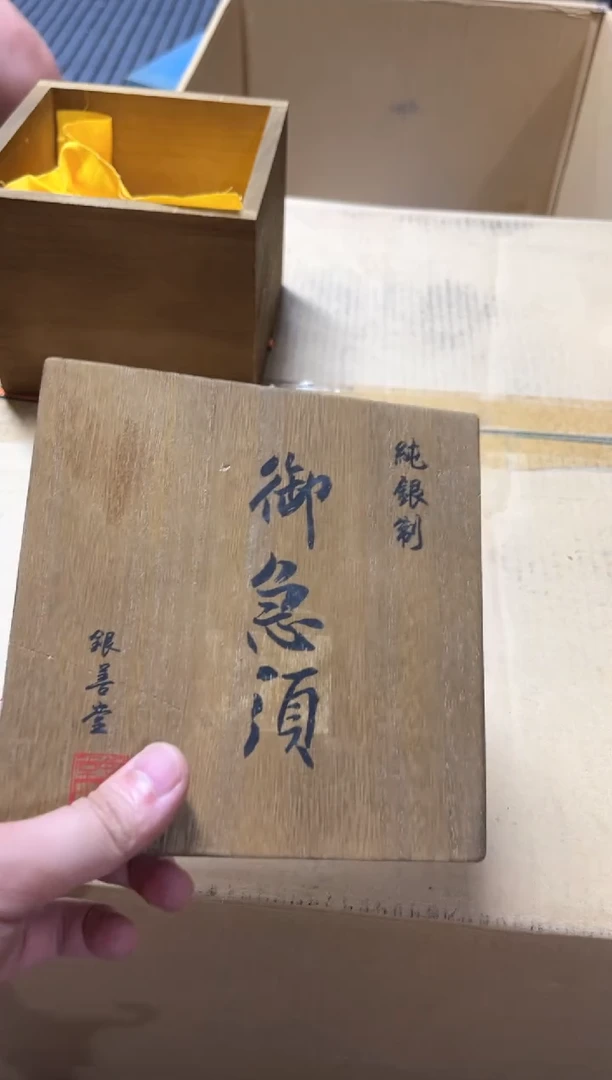 純銀制
御急須
銀善堂